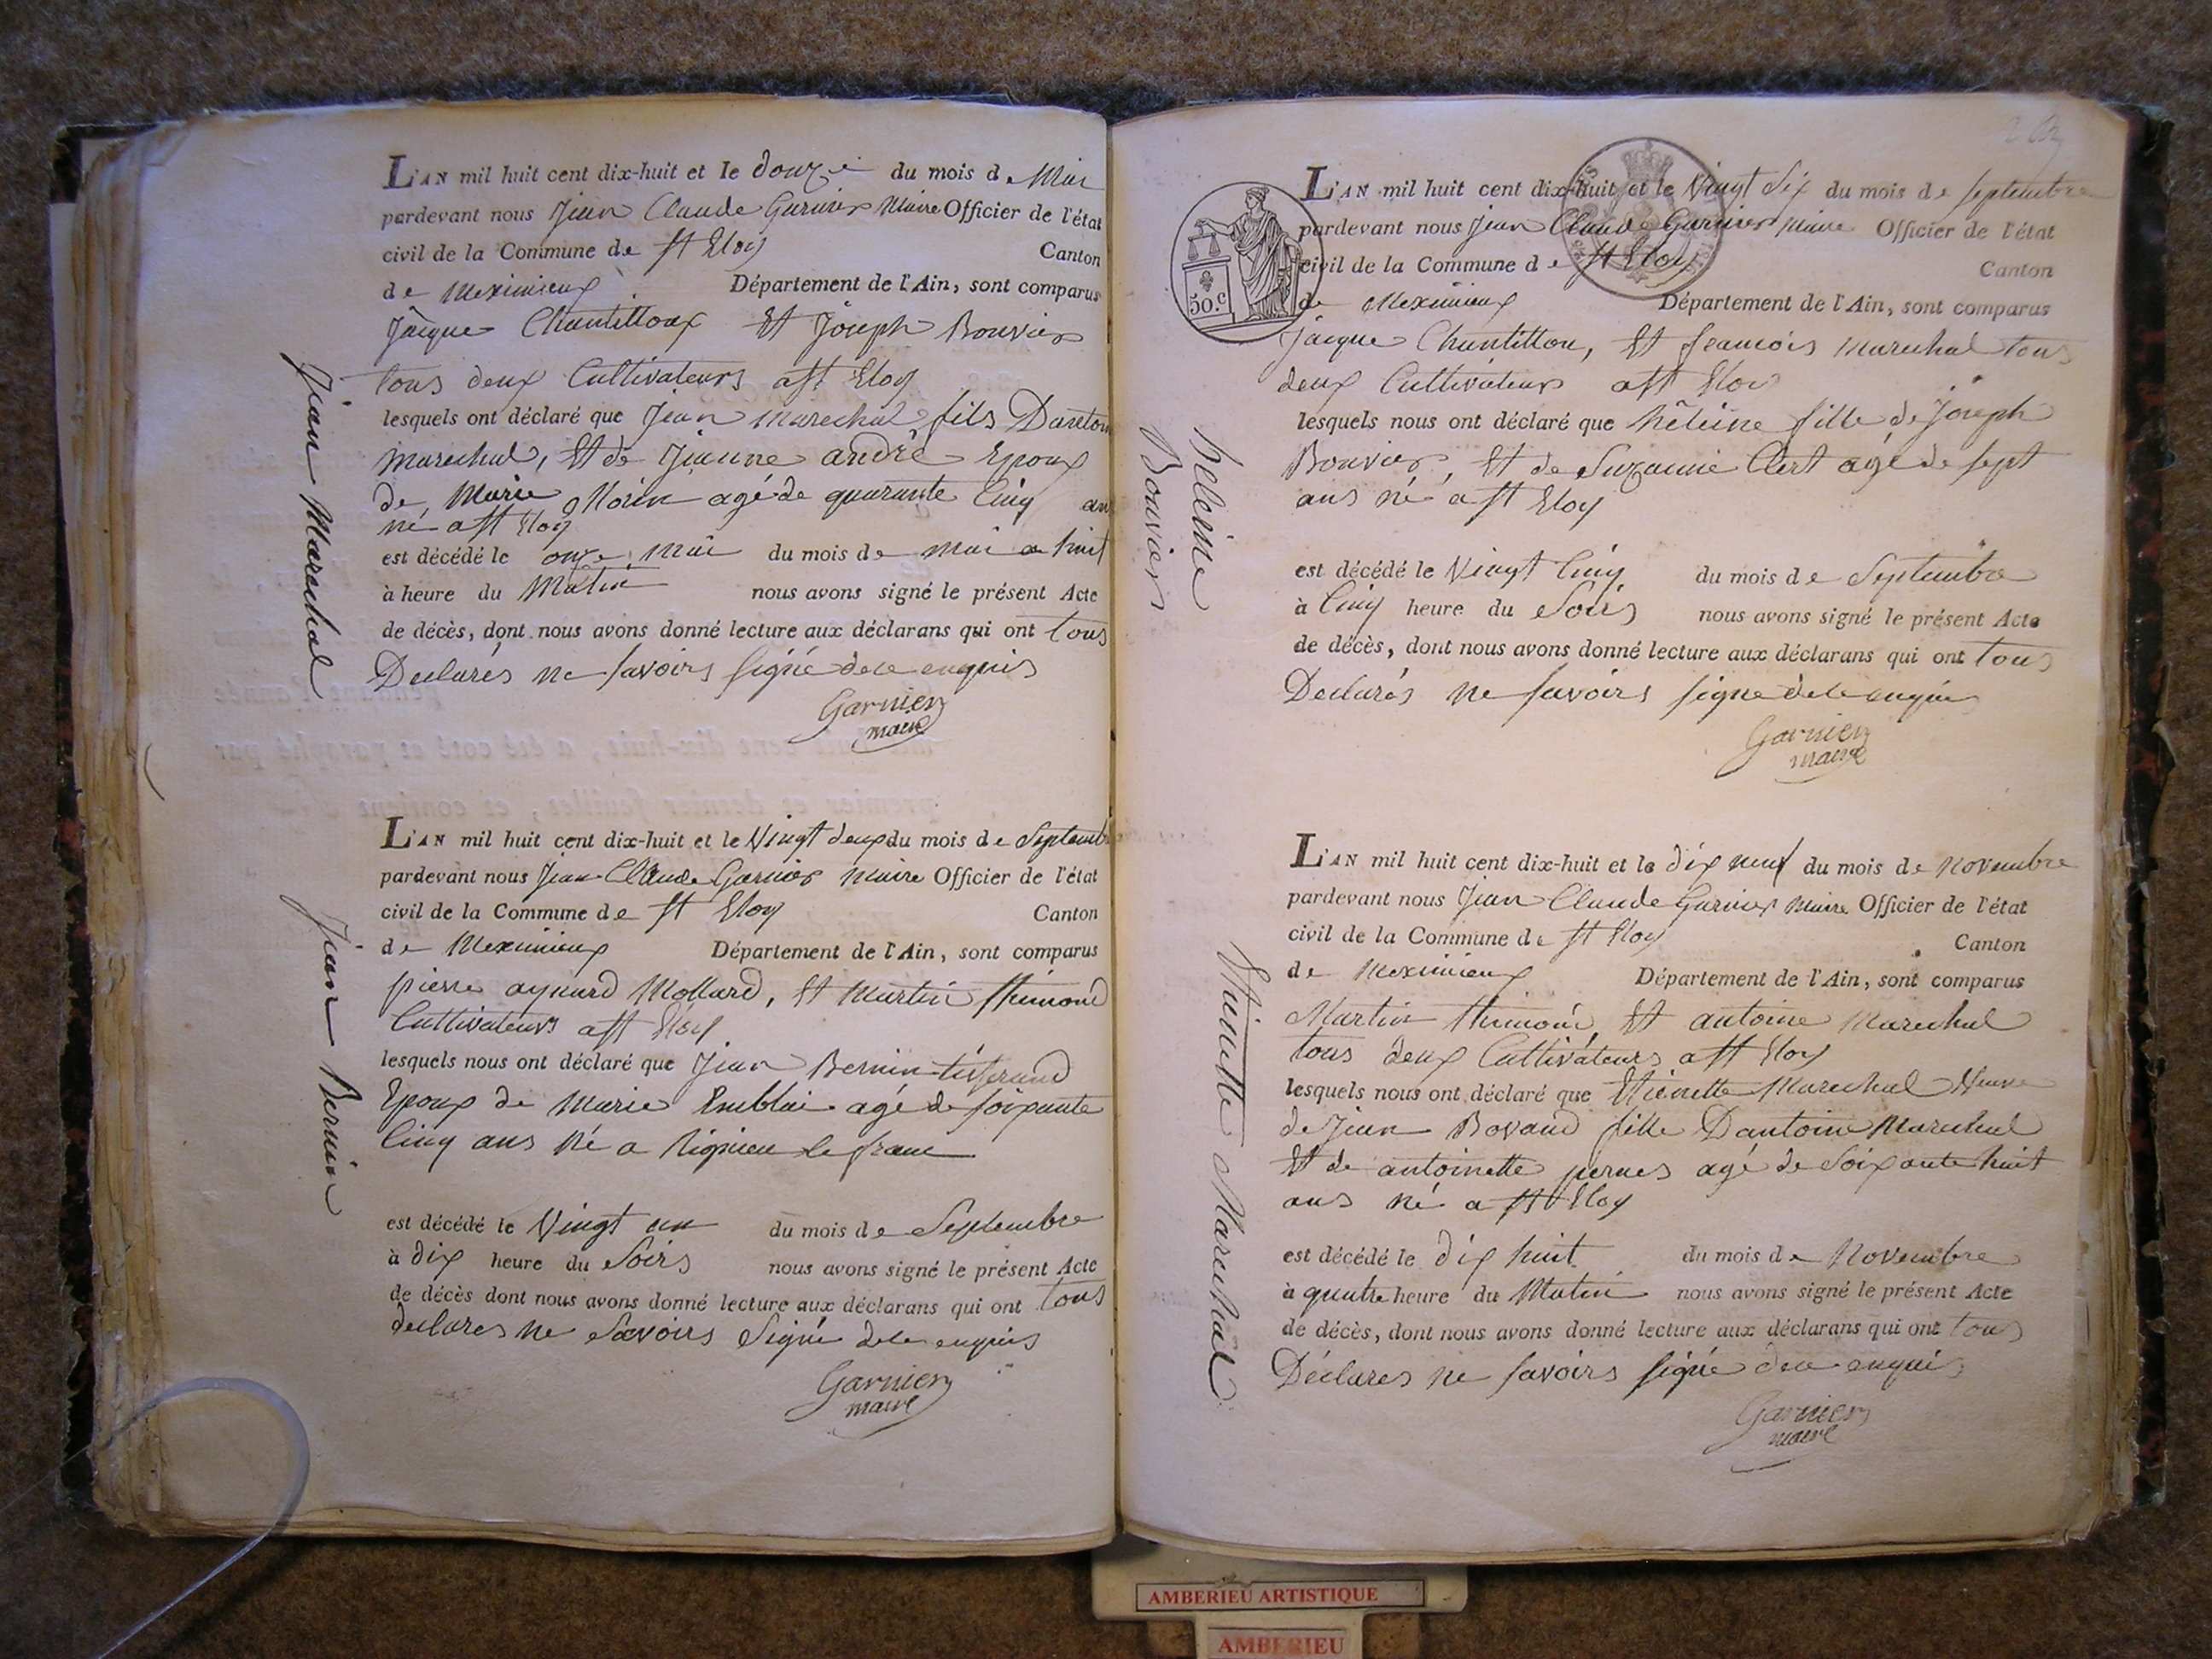 L'AN mil huit cent dix-huit et le douze du mois de Mai
pardevant nous Jean Claude Garnier Maire Officier de l'état
civil de la Commune de St Eloy Canton
de Meximieux Département de l'Ain, sont comparus
Jacque Chantillon Et Joseph Bouvier
tous deux Cultivateurs a St Eloy
lesquels ont déclaré que Jean Marechal fils Dantoin
Marechal, Et de Jeanne andrè Epoux
de Marie Morin agé de quarante Cinq ans
né a St Eloy
est décédé le onze Mai du mois de mai a huit
à heure du Matin nous avons signé le présent Acte
de décès, dont nous avons donné lecture aux déclarans qui ont tous
Declarés ne savoirs signé de ce enquis
Garnier
maire
Jean Marechal
L'AN mil huit cent dix-huit et le Vingt deux du mois de Septembre
pardevant nous Jean Claude Garnier Maire Officier de l'état
civil de la Commune de St Eloy Canton
de Meximieux Département de l'Ain, sont comparus
pierre aynard Mollard, Et Martin
Cultivateurs a St Eloy
lesquels nous ont déclaré que Jean Bernin tisserand
Epoux de Marie agé de soixante
Cinq ans Né a Rignieu le franc
est décédé le Vingt un du mois de Septembre
à dix heure du Soirs nous avons signé le présent Acte
de décès dont nous avons donné lecture aux déclarans qui ont tous
declares ne Savoirs Signé de ce enquis
Garnier
maire
Jean Bernin
50.c
L'AN mil huit cent dix-huit et le Vingt Six du mois de septembre
pardevant nous Jean Claude Garnier Maire Officier de l'état
civil de la Commune de St Eloy Canton
de Meximieux Département de l'Ain, sont comparus
jacque Chantillon, Et francois Marechal tous
deux Cultivateurs a St Eloy
lesquels nous ont déclaré que hèleine fille de Joseph
Bouvier, Et de Suzanne Clert agé de sept
ans né a St Eloy
est décédé le Vingt Cinq du mois de Septembre
à Cinq heure du Soirs nous avons signé le présent Acte
de décès, dont nous avons donné lecture aux déclarans qui ont tous
Declarés ne savoirs signe de ce enquis
Garnier
maire
heleine
Bouvier
L'AN mil huit cent dix-huit et le dix neuf du mois de Novembre
pardevant nous Jean Claude Garnier Maire Officier de l'état
civil de la Commune de St Eloy Canton
de Meximieux Département de l'Ain, sont comparus
Martin Et antoine Marechal
tous deux Cultivateurs a St Eloy
lesquels nous ont déclaré que Etienette Marechal Veuve
de Jean fille Dantoine Marechal
Et de antoinette agé de Soixante huit
ans né a St Eloy
est décédé le dix huit du mois de Novembre
à quatre heure du Matin nous avons signé le présent Acte
de décès, dont nous avons donné lecture aux déclarans qui ont tous
Déclares ne savoirs signé de ce enquis
Garnier
maire
Etienette Marechal
AMBERIEU ARTISTIQUE
AMBERIEU